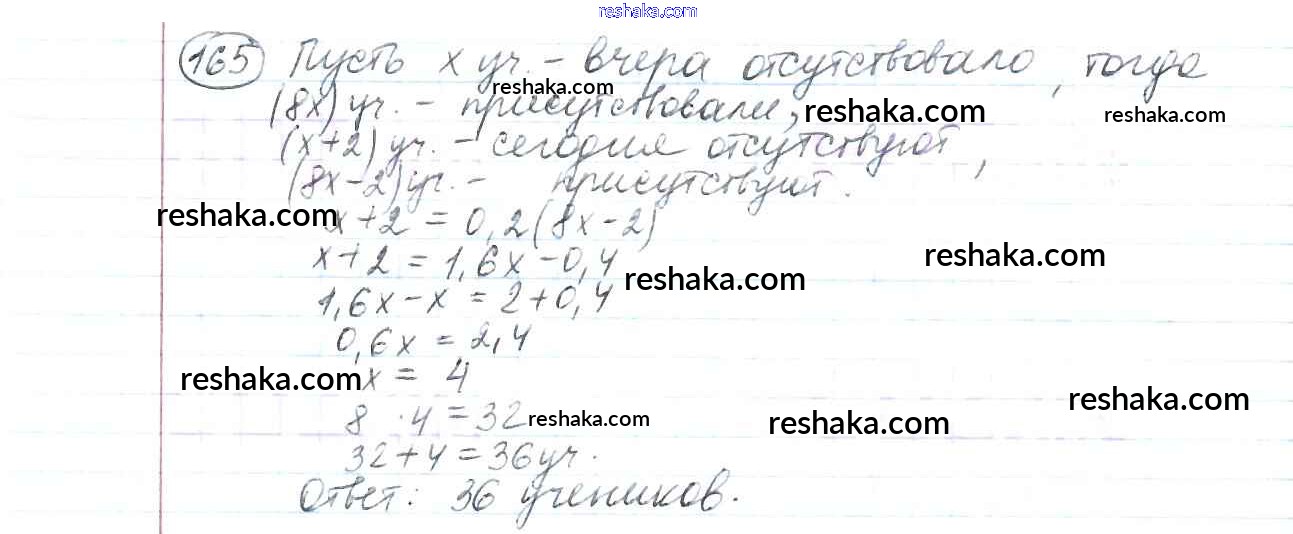 reshaka.com
165 Пусть x уч. - вчера отсутствовало, тогда
(8x) уч. - присутствовали,
reshaka.com
reshaka.com
reshaka.com
(x+2) уч. - сегодня отсутствуют,
(8x-2) уч. - присутствуют.
reshaka.com
x+2 = 0,2(8x-2)
reshaka.com
x+2 = 1,6x-0,4
reshaka.com
1,6x-x = 2+0,4
0,6x = 2,4
reshaka.com
x = 4
reshaka.com
8 · 4 = 32
reshaka.com
reshaka.com
32+4 = 36 уч.
Ответ: 36 учеников.